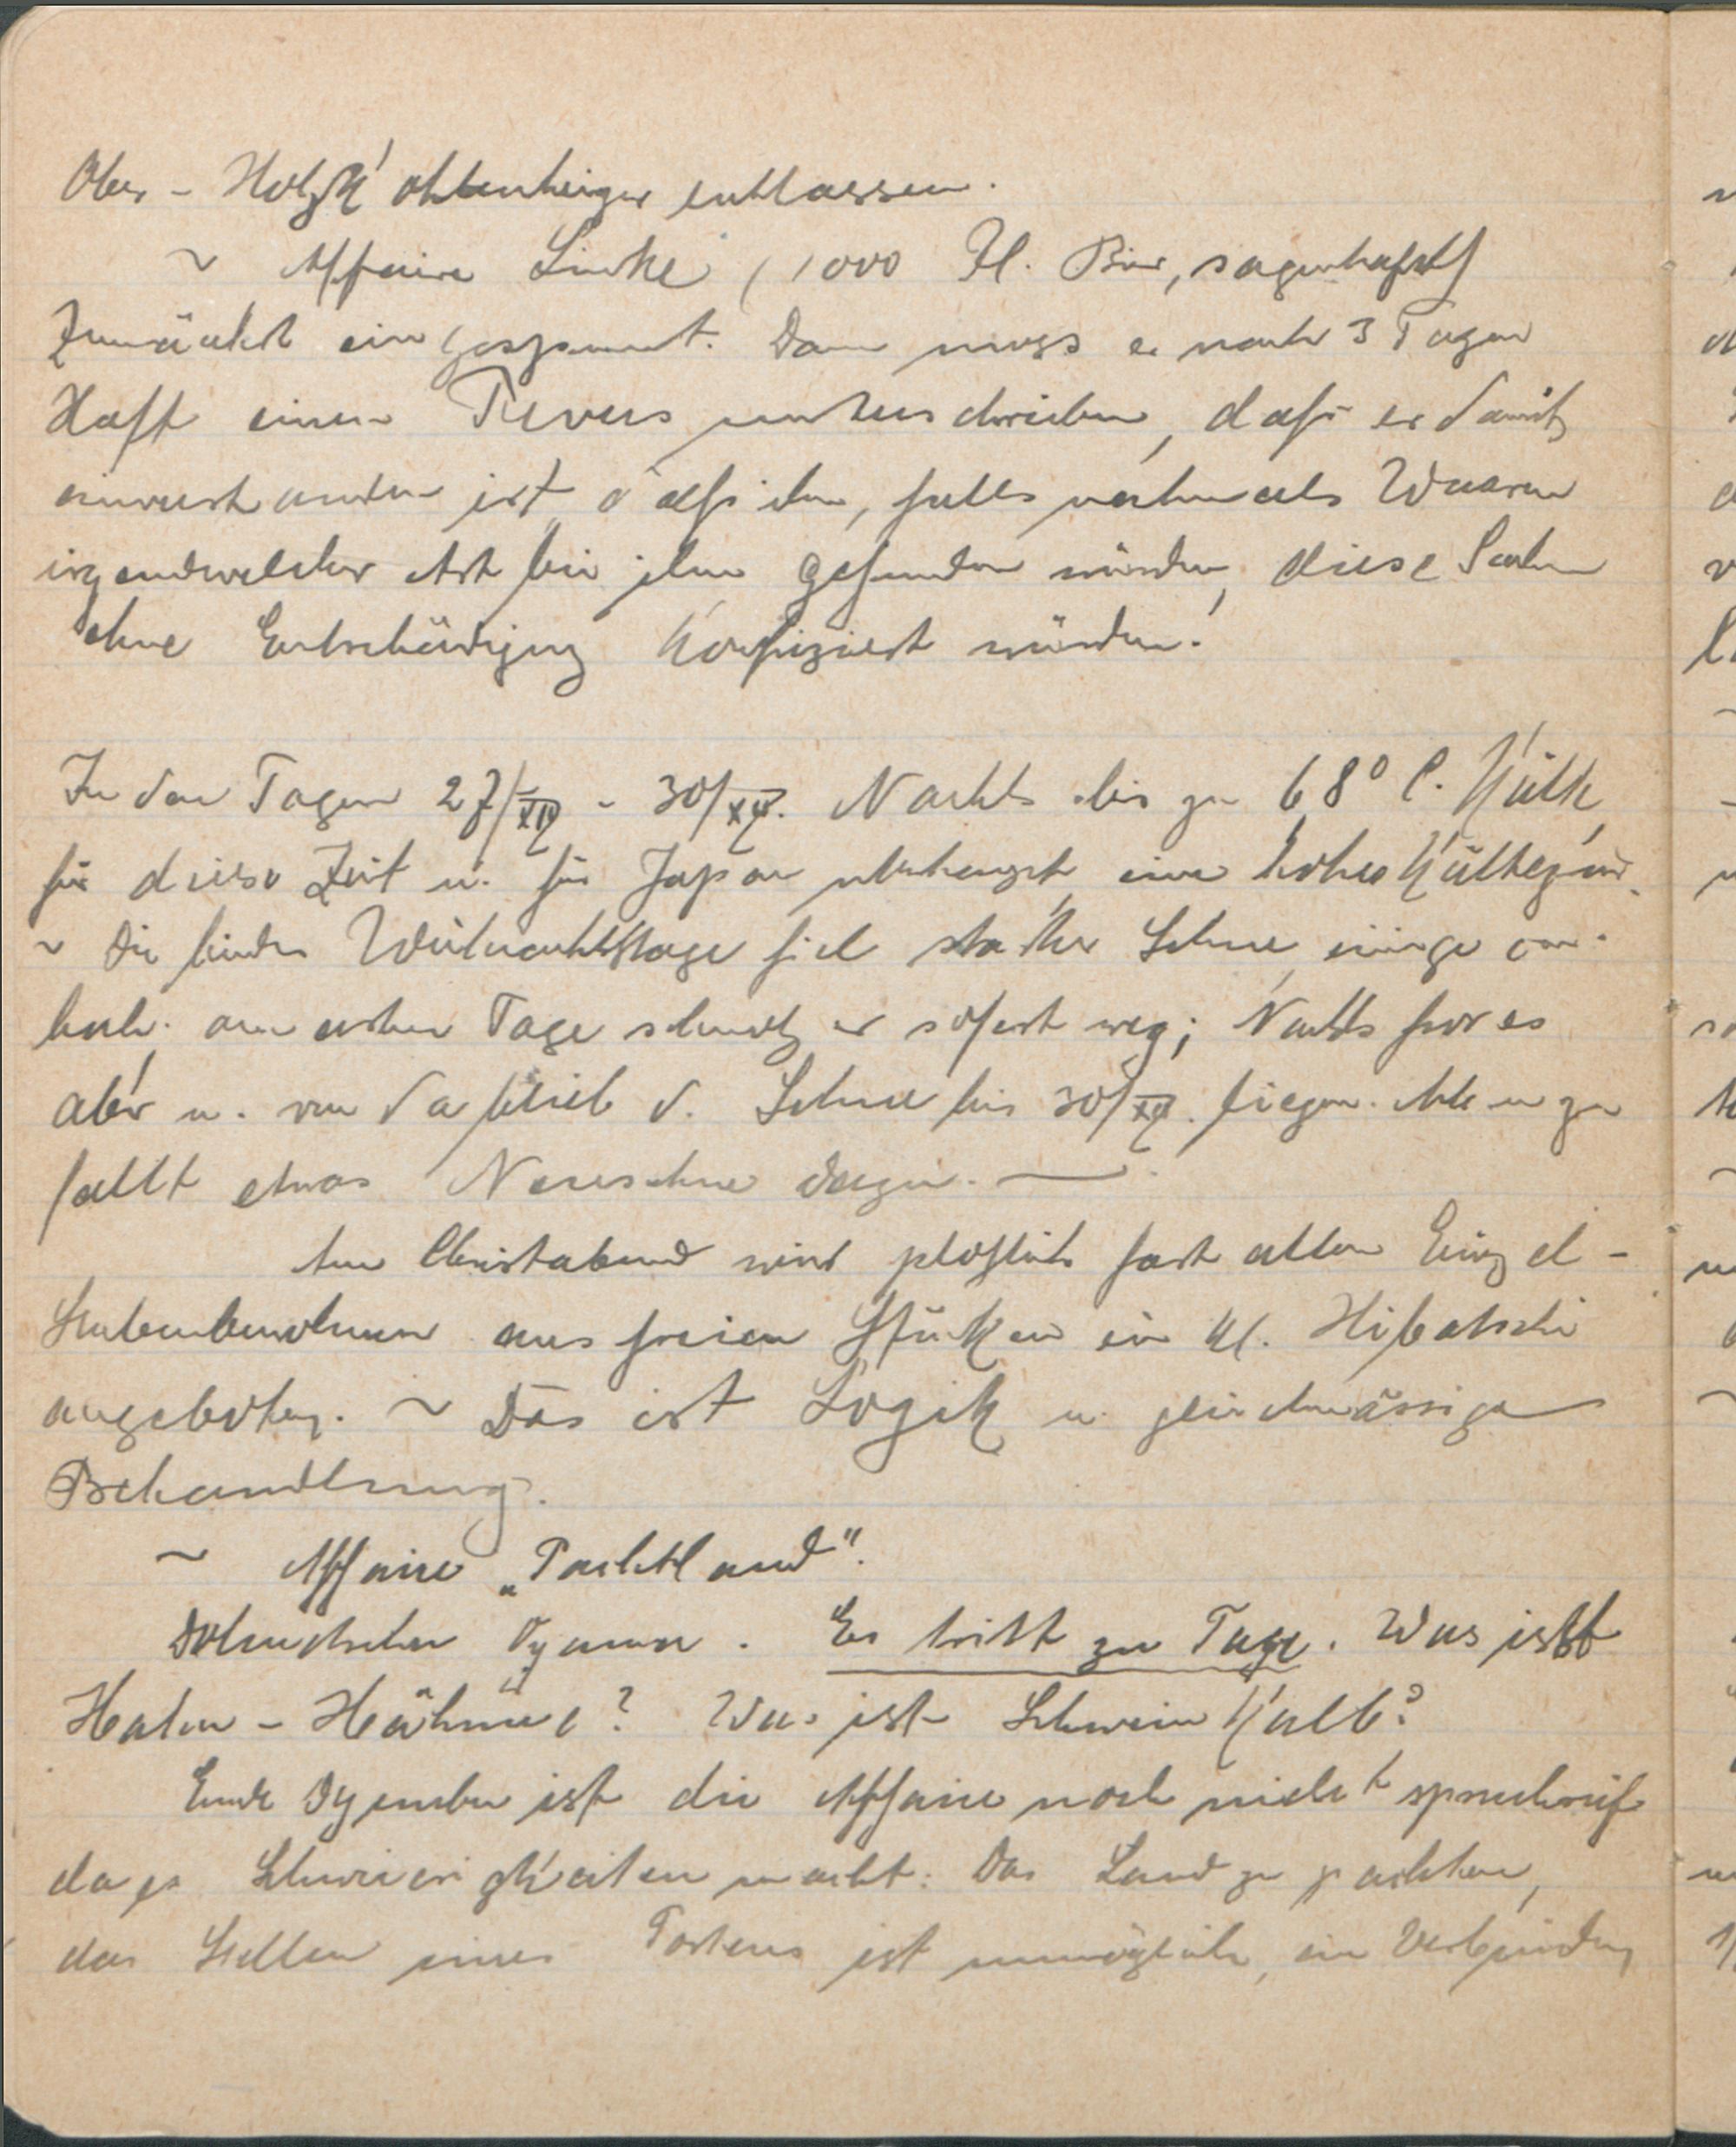 Ober-Holzkohlenheizer entlassen.
~ Affaire Linke (1000 Fl. Bier, sagenhaft)
Zunächst eingesperrt. Dann muss er nach 3 Tagen
Haft einen Revers unterschreiben, daß er damit
einverstanden ist, daß ihm, falls nochmals Waaren
irgendwelcher Art bei ihm gefunden würden, diese Sachen
ohne Entschädigung konfisziert würden!
In den Tagen 27/XII - 30/XII. Nachts bis zu 6,8° C. Kälte,
für diese Zeit u. für Japan überhaupt eine hohe Kältegrad.
~ Die beiden Weihnachtstage fiel starker Schnee, einige cm.
hoch. am ersten Tage schmolz er sofort weg; Nachts fror es
aber u. von da blieb d. Schnee bis 30/XII. liegen. Ab u zu
fällt etwas Neuschnee dazu. —
Am Christabend wird plötzlich fast allen Einzel-
Stubenbewohnern aus freien Stücken ein kl. Hibatschi
angeboten. ~ Das ist Logik u. gleichmässige
Behandlung.
~ Affaire „Pachtland".
Dolmetscher . Es tritt zu Tage. Was ist
Hahn - Hähne? Was ist Schwein Kalb?
Ende Dezember ist die Affaire noch nicht spruchreif
da es Schwierigkeiten macht. Das Land zu pachten,
das Stellen eines Postens ist unmöglich, ein Verbindung